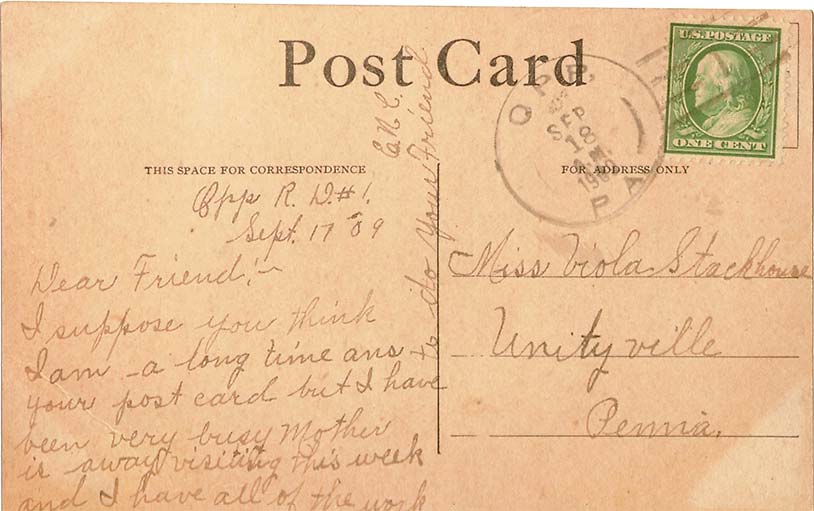 Post Card
U.S. POSTAGE
ONE CENT
OPP
SEP
18
A.M.
1909
PA.
THIS SPACE FOR CORRESPONDENCE
FOR ADDRESS ONLY
Opp R. D. #1.
Sept. 17 09
Dear Friend:-
I suppose you think
I am a long time ans
your post card but I have
been very busy Mother
is away visiting this week
and I have all of the work
to do Your Friend
E. N. C.
Miss Viola Stackhouse
Unityville
Penna.